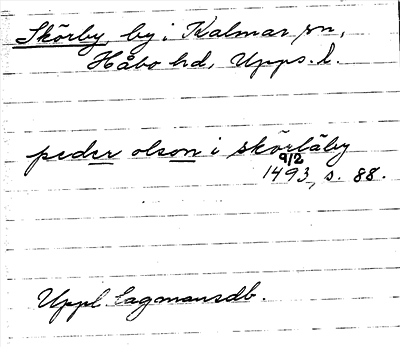 Skörby by i Kalmar sn,
Håbo hd, Upps. l.
peder olson i skörläby
9/2
1493, s. 88.
Uppl. Lagmansdb.